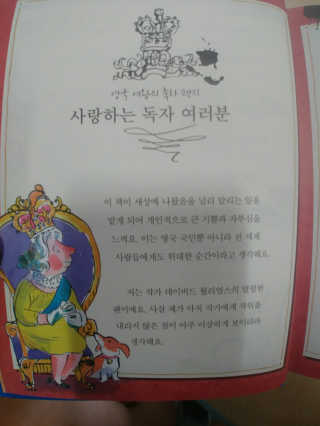 영국 여왕의 축하 편지
사랑하는 독자 여러분
이 책이 세상에 나왔음을 널리 알리는 일을
맡게 되어 개인적으로 큰 기쁨과 자부심을
느껴요. 이는 영국 국민뿐 아니라 전 세계
사람들에게도 위대한 순간이라고 생각해요.
저는 작가 데이비드 윌리엄스의 열렬한
팬이에요. 사실 제가 아직 작가에게 작위를
내리지 않은 점이 아주 이상하게 보이리라
생각해요.